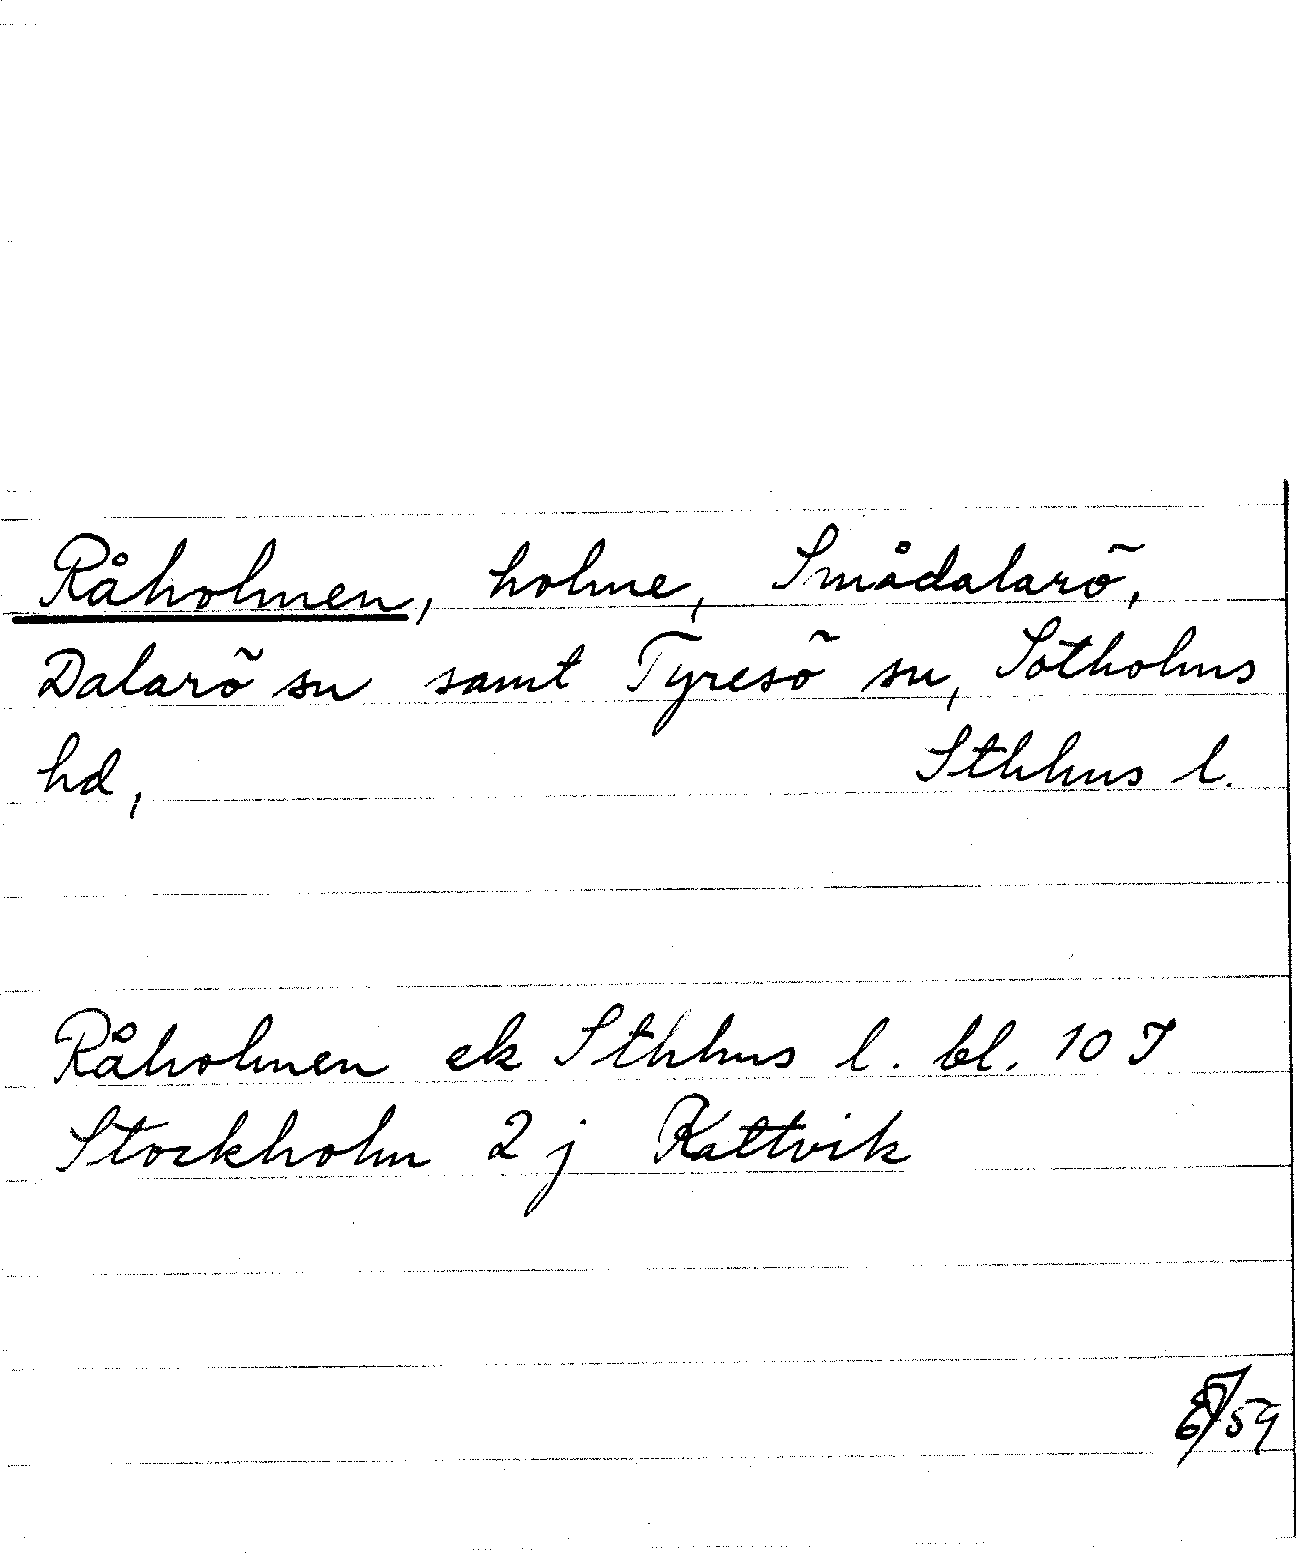 Råholmen, holme, Smådalarö,
Dalarö sn samt Tyresö sn, Sotholms
hd, Sthlms l.
Råholmen ek Sthlms l. bl. 10 I
Stockholm 2 j Kattvik
59